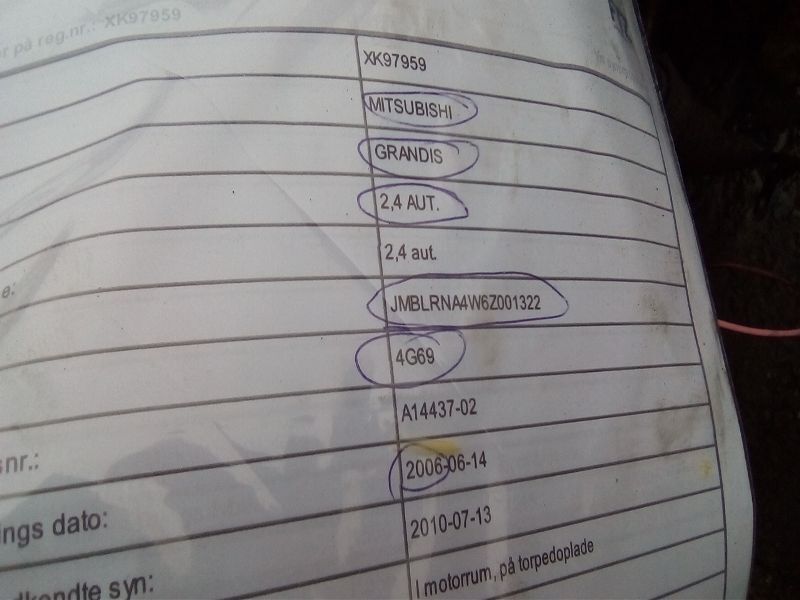 på reg.nr.: XK97959
XK97959
MITSUBISHI
GRANDIS
2,4 AUT.
2,4 aut.
e:
JMBLRNA4W6Z001322
4G69
A14437-02
snr.: 2006-06-14
ings dato: 2010-07-13
dkendte syn: I motorrum, på torpedoplade